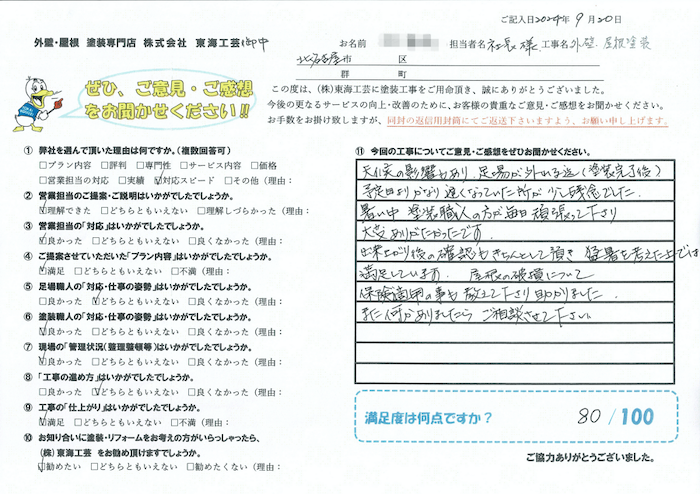 ご記入日2024年9月20日
外壁・屋根 塗装専門店 株式会社 東海工芸御中
お名前 様 担当者名 社長様 工事名 外壁、屋根塗装
北名古屋市 区
郡 町
ぜひ、ご意見・ご感想
をお聞かせください!!
この度は、(株)東海工芸に塗装工事をご用命頂き、誠にありがとうございました。
今後の更なるサービスの向上・改善のために、お客様の貴重なご意見・ご感想をお聞かせください。
お手数をお掛け致しますが、同封の返信用封筒にてご返送下さいますよう、お願い申し上げます。
① 弊社を選んで頂いた理由は何ですか。(複数回答可)
□プラン内容 □評判 □専門性 □サービス内容 □価格
□営業担当の対応 □実績 ☑対応スピード □その他(理由:
② 営業担当のご提案・ご説明はいかがでしたでしょうか。
☑理解できた □どちらともいえない □理解しづらかった(理由:
③ 営業担当の「対応」はいかがでしたでしょうか。
☑良かった □どちらともいえない □良くなかった(理由:
④ ご提案させていただいた「プラン内容」はいかがでしたでしょうか。
☑満足 □どちらともいえない □不満(理由:
⑤ 足場職人の「対応・仕事の姿勢」はいかがでしたでしょうか。
□良かった ☑どちらともいえない □良くなかった(理由:
⑥ 塗装職人の「対応・仕事の姿勢」はいかがでしたでしょうか。
☑良かった □どちらともいえない □良くなかった(理由:
⑦ 現場の「管理状況(整理整頓等)」はいかがでしたでしょうか。
☑良かった □どちらともいえない □良くなかった(理由:
⑧ 「工事の進め方」はいかがでしたでしょうか。
□良かった ☑どちらともいえない □良くなかった(理由:
⑨ 工事の「仕上がり」はいかがでしたでしょうか。
☑満足 □どちらともいえない □不満(理由:
⑩ お知り合いに塗装・リフォームをお考えの方がいらっしゃったら、
(株)東海工芸 をお勧め頂けますでしょうか。
☑勧めたい □どちらともいえない □勧めたくない(理由:
⑪ 今回の工事についてご意見・ご感想をぜひお聞かせください。
天候の影響もあり、足場が外れる迄(塗装完了後)
予定日よりかなり遅くなっていた所が少し残念でした。
暑い中 塗装職人の方が毎日頑張って下さり
大変ありがたかったです。
出来上がり後の確認もきちんとして頂き 猛暑を考えた上では
満足しています。 屋根の破損について
保険適用の事も教えて下さり助かりました。
また何かありましたら ご相談させて下さい。
満足度は何点ですか? 80/100
ご協力ありがとうございました。